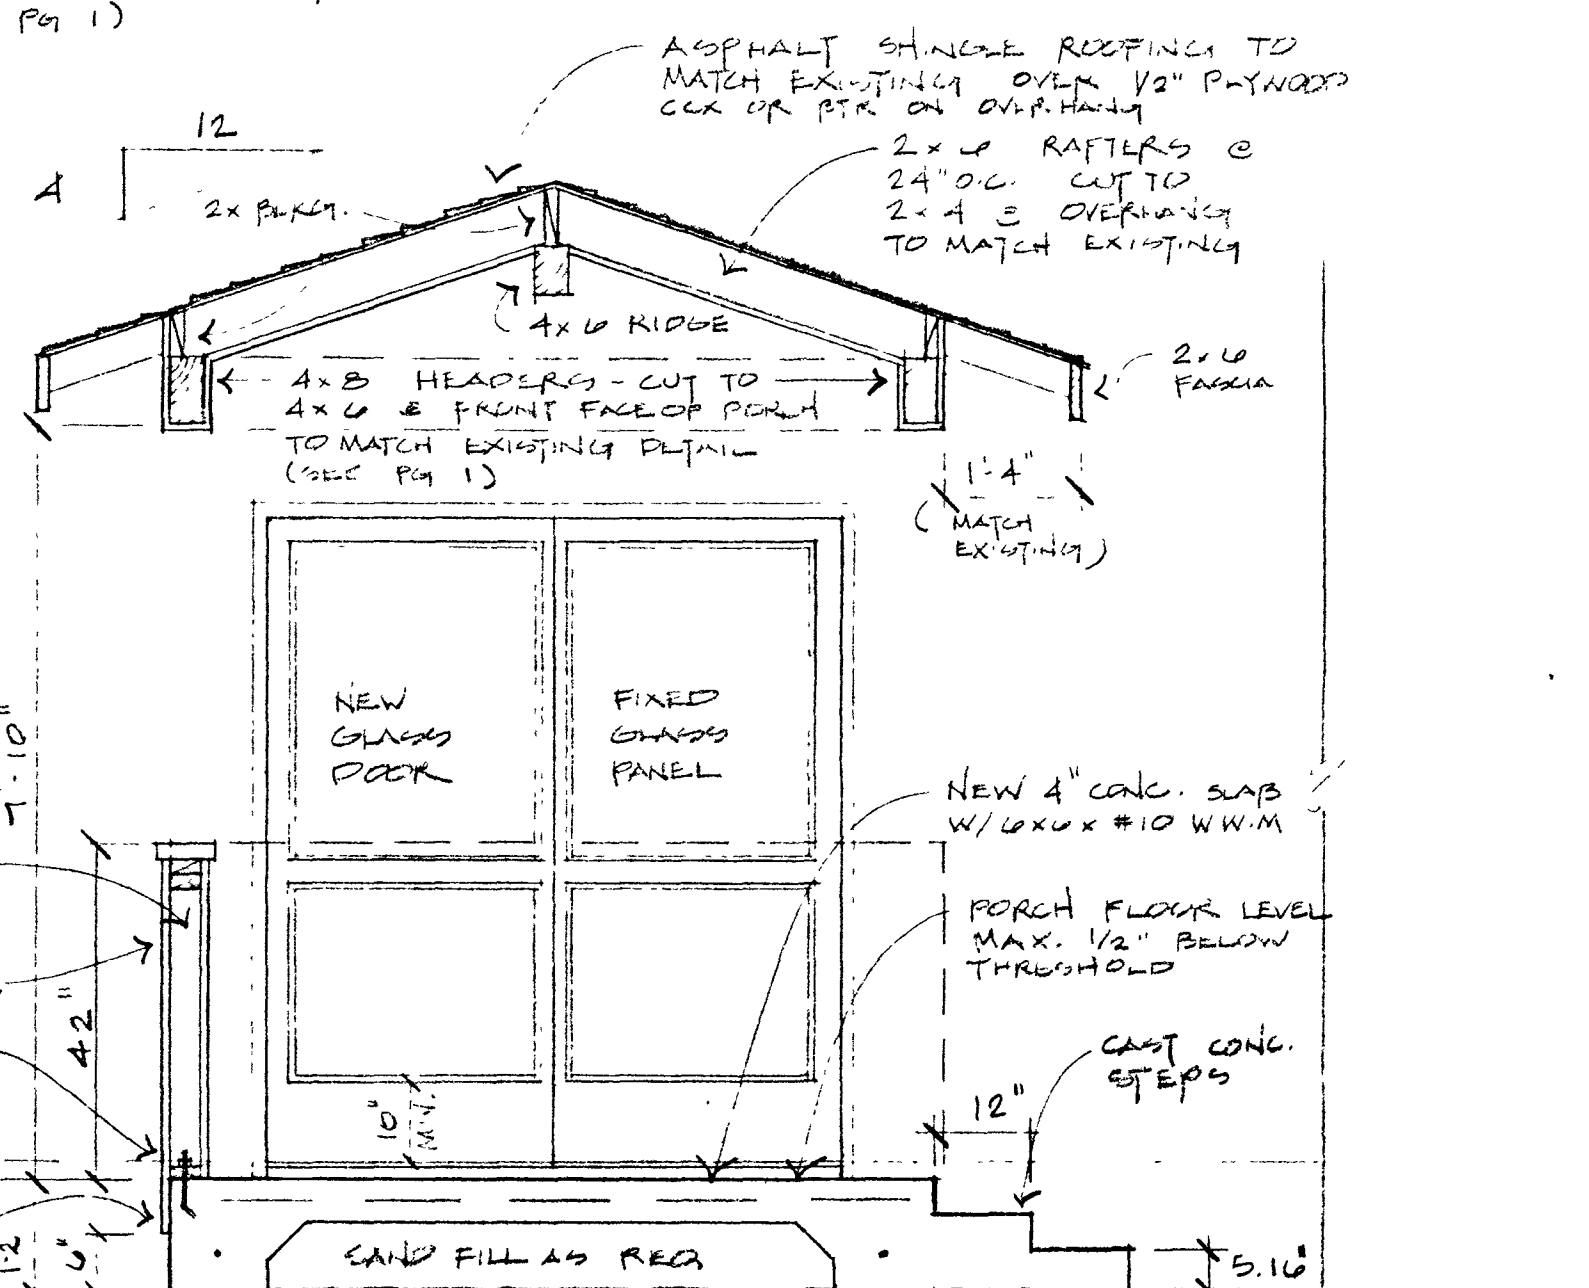 PG 1)
ASPHALT SHINGLE ROOFING TO
MATCH EXISTING OVER 1/2" PLYWOOD
CCX OR BTR ON OVERHANG
12
4
2x BLKG.
2x6 RAFTERS @
24" O.C. CUT TO
2x4 @ OVERHANG
TO MATCH EXISTING
4x6 RIDGE
2x6
FASCIA
4x8 HEADERS - CUT TO
4x6 @ FRONT FACE OF PORCH
TO MATCH EXISTING DETAIL
(SEE PG 1)
1'-4"
(MATCH
EXISTING)
NEW
GLASS
DOOR
FIXED
GLASS
PANEL
7'-10"
NEW 4" CONC. SLAB
W/ 6x6x #10 W.W.M
PORCH FLOOR LEVEL
MAX. 1/2" BELOW
THRESHOLD
42"
CAST CONC.
STEPS
10"
12"
SAND FILL AS REQ
6"
5.16"